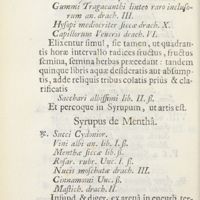 Gummi Tragacanthi linteo raro inclusorum an. drach. III.
Hyssopi mediocriter siccæ drach. X.
Capillorum Veneris drach. VI.
Elixentur simul, sic tamen, ut quadrantis horæ intervallo radices fructus, fructus
semina, semina herbas præcedant: tandem
quinque libris aquæ desideratis aut absumptis, adde reliquis tribus colatis prius & clarificatis
Sacchari albissimi lib. II. ß.
Et percoque in Syrupum, ut artis est.
Syrupus de Menthâ.
℞. Succi Cydonior.
Vini albi an. lib. I. ß.
Menthæ siccæ lib. ß.
Rosar. rubr. Unc. I. ß.
Nucis moschatæ drach. III.
Cinnamomi Unc. ß.
Mastich. drach. II.